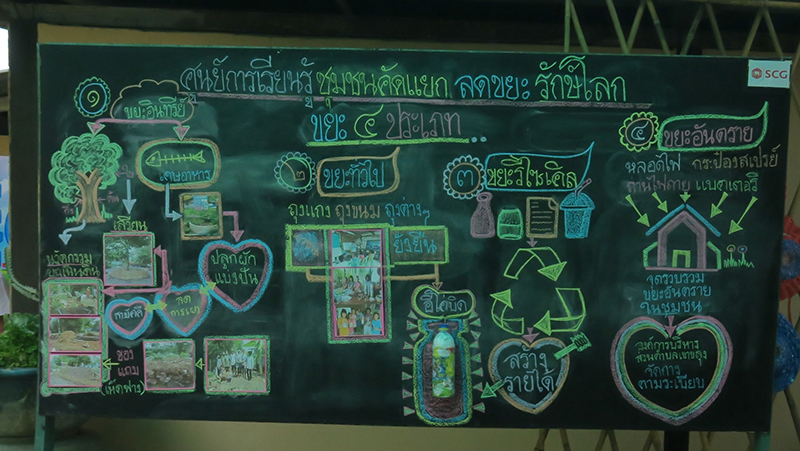 ศูนย์การเรียนรู้ ชุมชนคัดแยก ลดขยะ รักษ์โลก
SCG
ขยะ ๔ ประเภท
๑ ขยะอินทรีย์
เศษอาหาร
กิ่ง
เสวียน
นวัตกรรม
ปลูกผัก
แบ่งปัน
สามัคคี
ลด
การเผา
ของ
แถม
(เห็ดฟาง)
๒ ขยะทั่วไป
ถุงแกง ถุงขนม ถุงต่างๆ
ยั่งยืน
๓ ขยะรีไซเคิล
สร้าง
รายได้
๔ ขยะอันตราย
หลอดไฟ กระป๋องสเปรย์
ถ่านไฟฉาย แบตเตอรี่
จุดรวบรวม
ขยะอันตราย
ในชุมชน
องค์การบริหาร
จัดการ
ตามระเบียบ